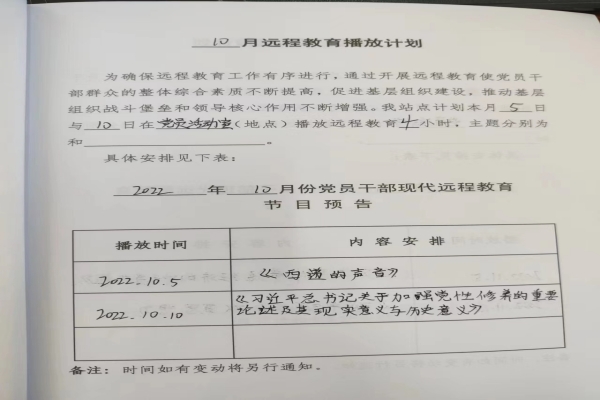 10 月远程教育播放计划
为确保远程教育工作有序进行，通过开展远程教育使党员干
部群众的整体综合素质不断提高，促进基层组织建设，推动基层
组织战斗堡垒和领导核心作用不断增强。我站点计划本月 5 日
与 10 日在党员活动室(地点)播放远程教育 4 小时，主题分别为
和 。
具体安排见下表：
2022 年 10 月份党员干部现代远程教育
节目预告
播放时间 内容安排
2022.10.5 《西道的声音》
2022.10.10 《习近平总书记关于加强党性修养的重要
论述及其现实意义与历史意义》
备注：时间如有变动将另行通知。